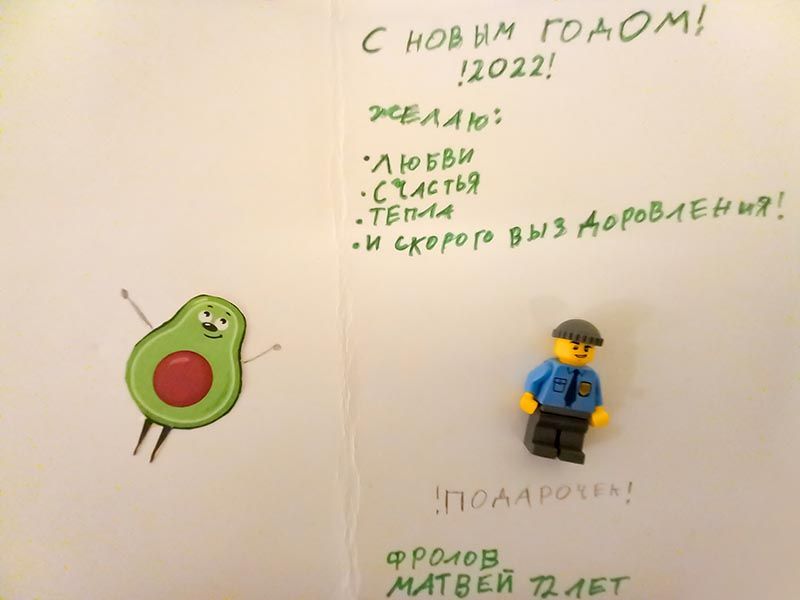 С НОВЫМ ГОДОМ!
!2022!
ЖЕЛАЮ:
•ЛЮБВИ
•СЧАСТЬЯ
•ТЕПЛА
•И СКОРОГО ВЫЗДОРОВЛЕНИЯ!
!ПОДАРОЧЕК!
ФРОЛОВ
МАТВЕЙ 12 ЛЕТ